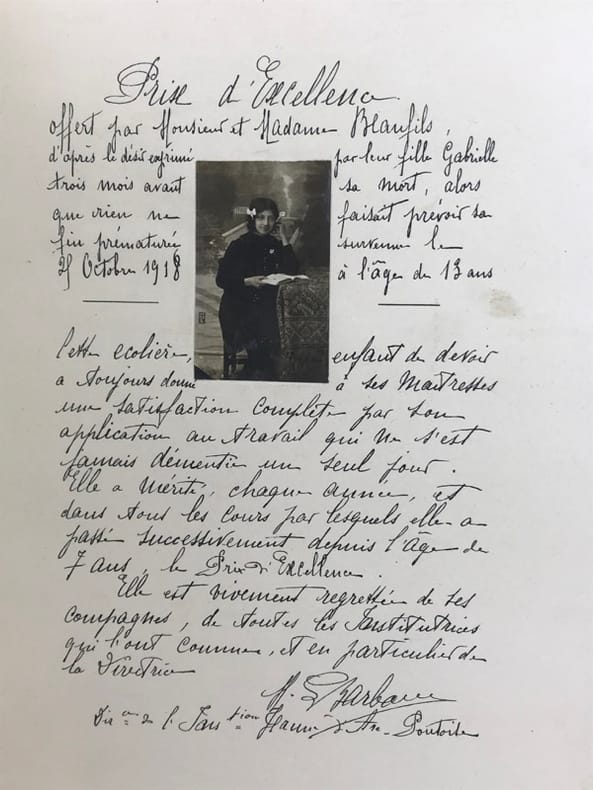 Prix d'Excellence
offert par Monsieur et Madame Beaufils,
d'après le désir exprimé par leur fille Gabrielle
trois mois avant sa mort, alors
que rien ne faisait prévoir sa
fin prématurée survenue le
25 Octobre 1918 à l'âge de 13 ans
Cette écolière, enfant de devoir
a toujours donné à ses Maîtresses
une satisfaction complète par son
application au travail qui ne s'est
jamais démentie un seul jour.
Elle a mérité, chaque année, et
dans tous les cours par lesquels elle a
passé successivement depuis l'âge de
7 ans, le Prix d'Excellence.
Elle est vivement regrettée de ses
compagnes, de toutes les Institutrices
qui l'ont connue, et en particulier de
la Directrice
Dir ce de l'Institution Jeanne d'Arc Pontoise